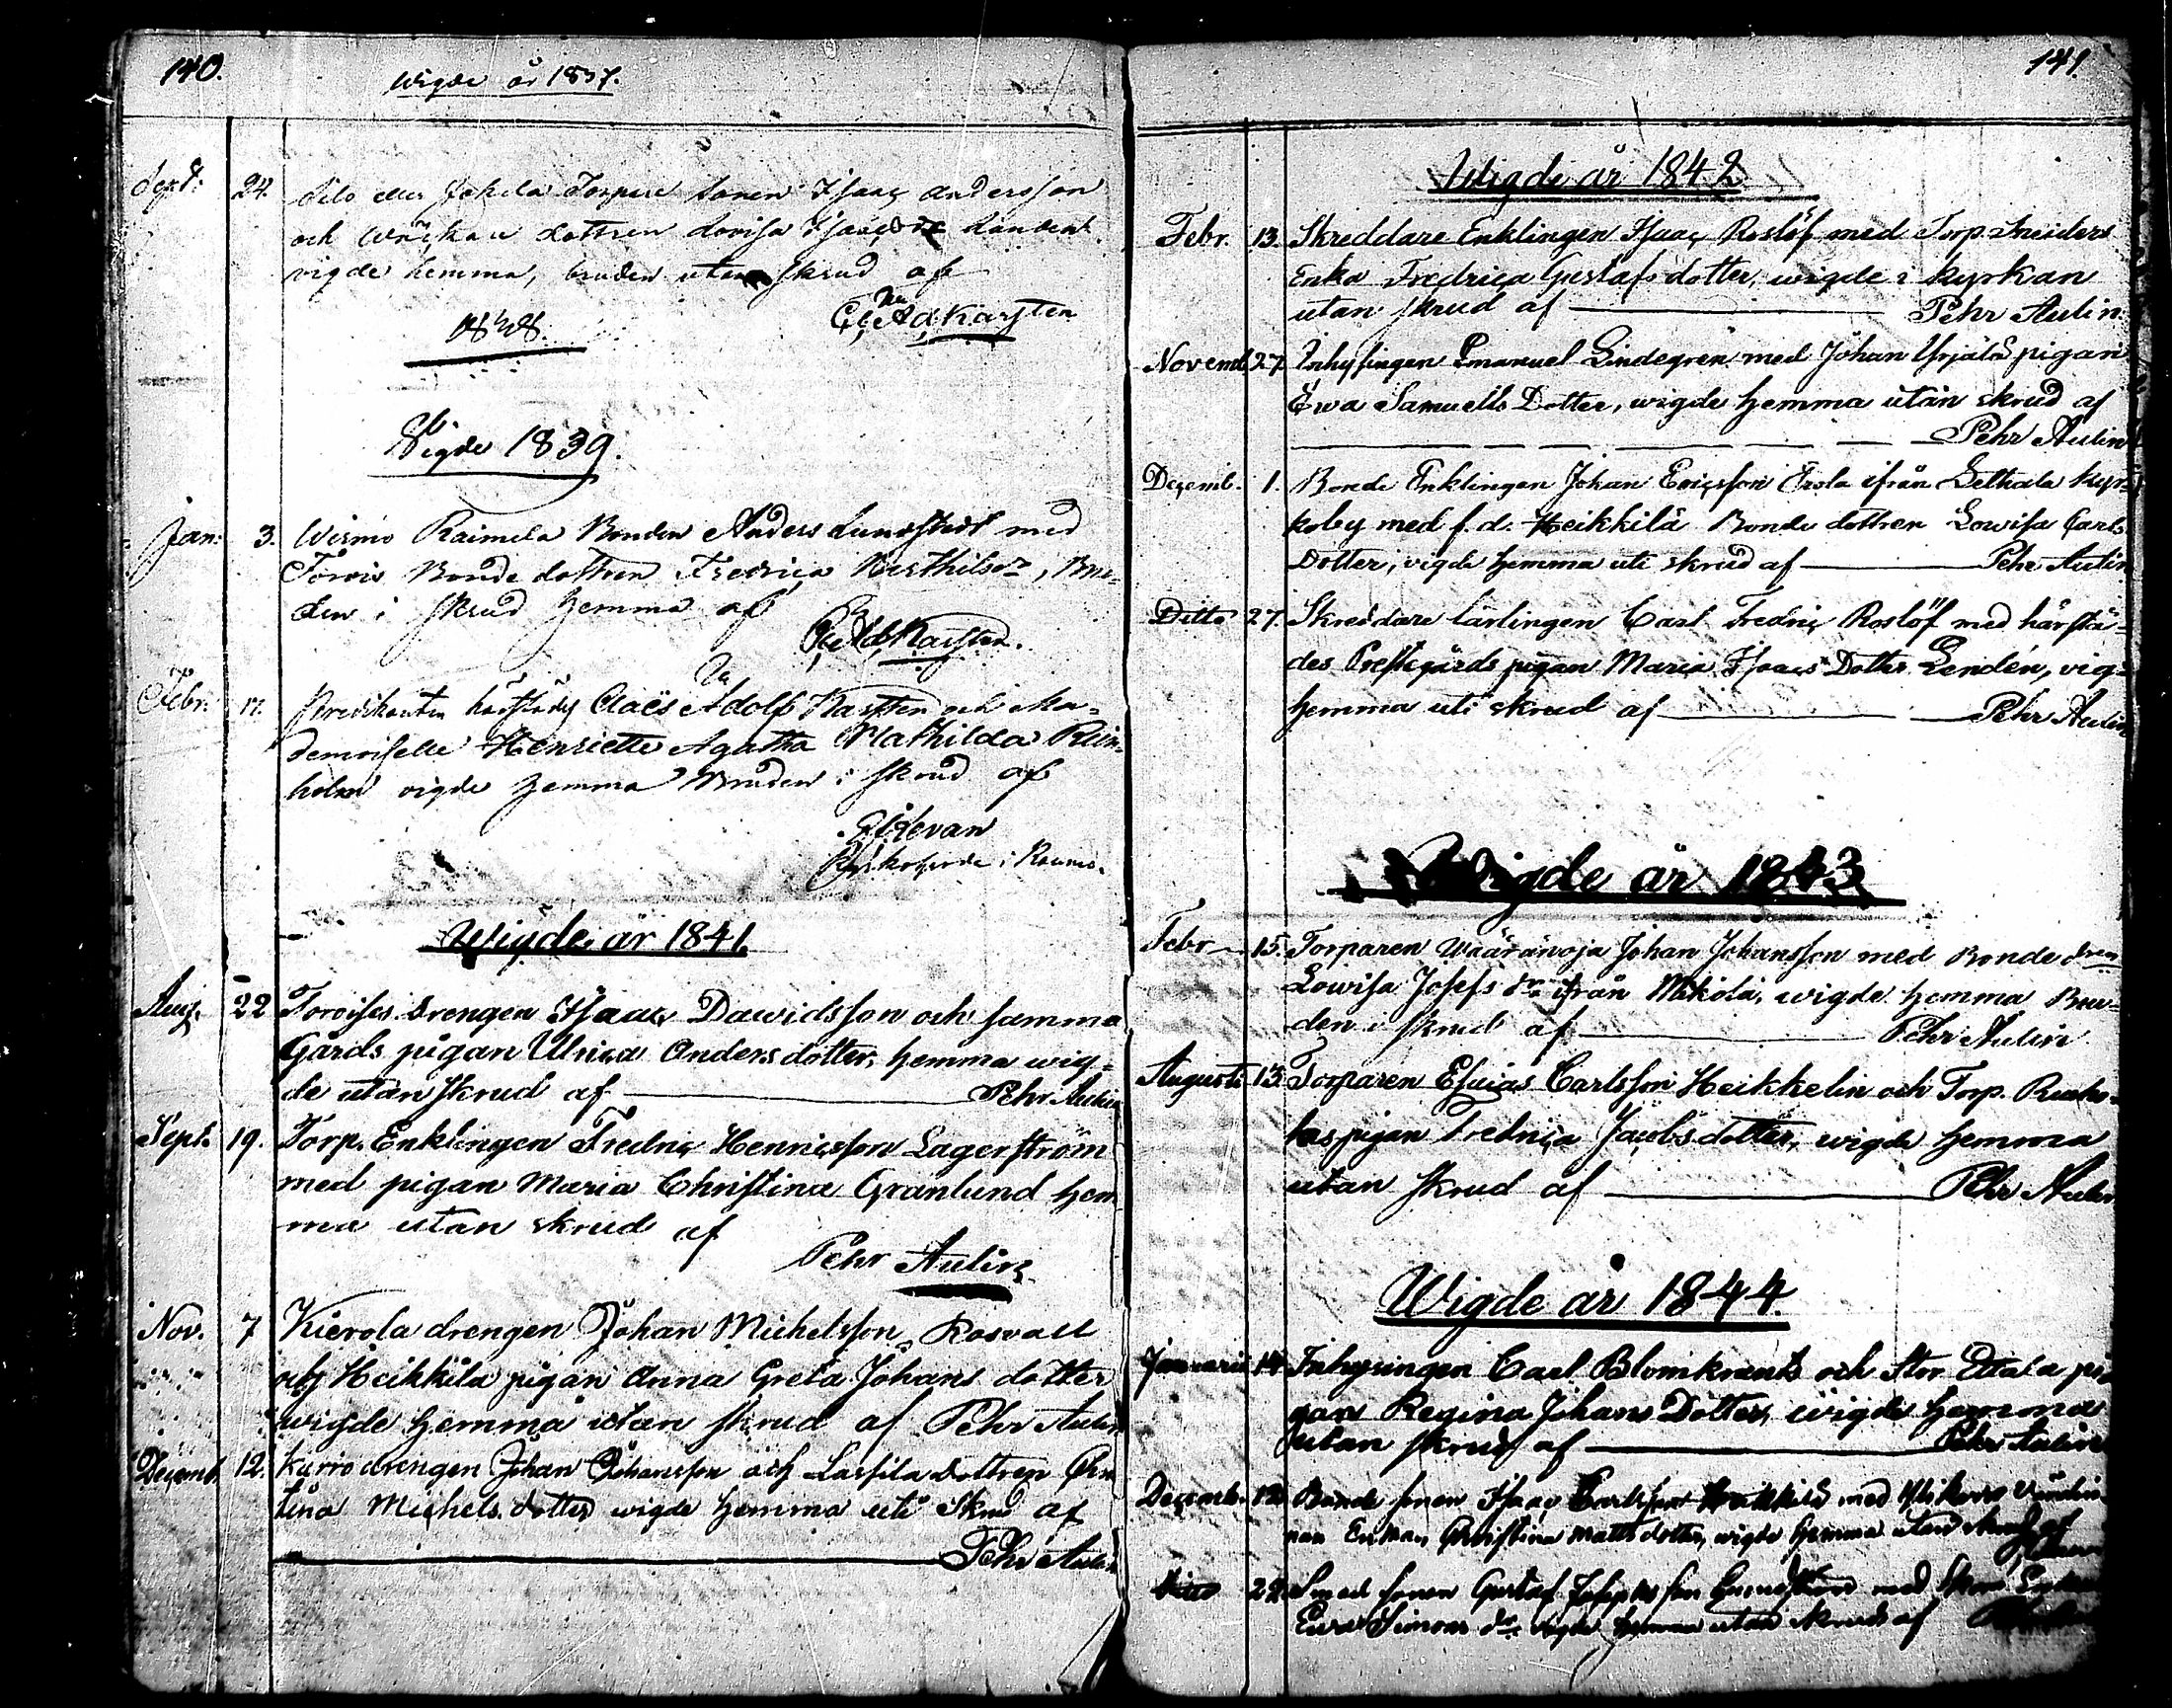 140.
Wigde år 1837.
Sept: 24. Jokela Torpare sonen Isaac Andersson
och dottren Lovisa
vigde hemma, bruden utan skrud af
Karsten
1838.
Wigde 1839.
Jan: 3. Wirmo Raimela Bonden Anders Lundstedt med
Torvis Bonde dottren Fredrica Berthilsdr, Bru-
den i skrud hemma af
Karsten.
Febr: 17. Predikanten härstädes Claës Adolf Karsten och Ma-
demoiselle Henriette Agatha Mathilda Rein-
holm vigde hemma Bruden i skrud af
Levan
Kyrkoherde i Raumo.
Wigde år 1841.
Aug. 22 Torvises drengen Isaac Dawidsson och samma
Gårds pigan Ulrica Anders dotter, hemma wig-
de utan skrud af — Pehr Aulin
Sept. 19. Torp. Enklingen Fredric Henricsson Lagerström
med pigan Maria Christina Granlund hem
ma utan skrud af
Pehr Aulin
Nov. 7 Kierola drengen Johan Michelsson Rosvall
och Heikkilä pigan Anna Greta Johans dotter
wigde hemma utan skrud af Pehr Aulin
Decemb. 12. Kurro drengen Johan Johansson och Lassila Dottren
tina Michels dotter wigde hemma uti skrud af
— Pehr Aulin
141.
Wigde år 1842
Febr. 13. Skreddare Enklingen Isaac Roslöf med Torp.
Enka Fredrica Gustafs dotter, wigde i kyrkan
utan skrud af — Pehr Aulin.
Novemb. 27. Inhysingen Emanuel Lindegren med Johan Yrjälä pigan
Ewa Samuells Dotter, wigde hemma utan skrud af
— Pehr Aulin
Decemb. 1. Bonde Enklingen Johan Ericsson Erola ifrån Lethala Kyr-
koby med f.d. Heikkilä Bonde dottren Lowisa Carls
Dotter, vigde hemma uti skrud af — Pehr Aulin
Ditto 27. Skreddare lärlingen Carl Fredric Roslöf med härstä-
des Prestgårds pigan Maria Isaacs Dotter Lendén, vig-
hemma uti skrud af — Pehr Aulin
Wigde år 1843
Febr 15. Torparen Wääränoja Johan Johansson med Bonde
Lowisa Josefs dr ifrån Mikola, wigde hemma Bru-
den i skrud af — Pehr Aulin
Augusti 13. Torparen Esaias Carlsson Heikkelin och Torp.
pigan Fredrica Jacobs dotter, wigde hemma
utan skrud af — Pehr Aulin
Wigde år 1844.
Januarii 14. Inhysingen Carl Blomkrants och Stor Etala pi
gan Regina Johans Dotter, wigde hemma
utan skrud af — Pehr Aulin
Decemb. Bonde sonen Isaac Carlsson Heikkilä med
Enkan, Christina Matts dotter, wigde hemma utan skrud af
22. sonen Gustaf med
Eva Simons dr wigde hemma utan skrud af